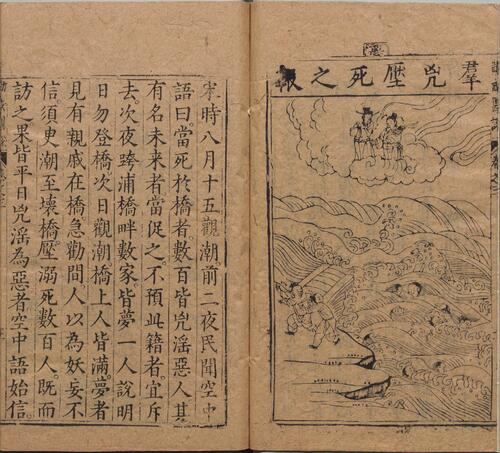 羣兇壓死之報
宋時八月十五觀潮前二夜民聞空中
語曰當死於橋者數百皆兇淫惡人其
有名未來者當促之不預此籍者宜斥
去次夜跨浦橋畔數家皆夢一人說明
日勿登橋次日觀潮橋上人皆滿夢者
見有親戚在橋急勸間人以為妖妄不
信須臾潮至壞橋壓溺死數百人既而
訪之果皆平日兇淫為惡者空中語始信